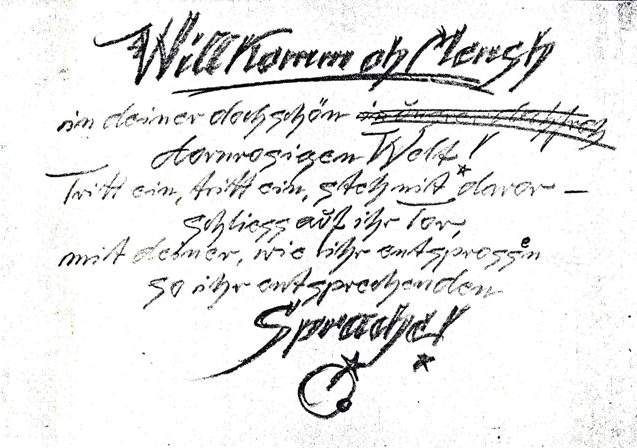 Willkomm oh Mensh
in deiner doch schön
dornrosigen Welt!
Tritt ein, tritt ein, steh nit davor –
schliess auf ihr Tor,
mit deiner, wie ihr entsprossen
so ihr entsprechenden
Sprache!